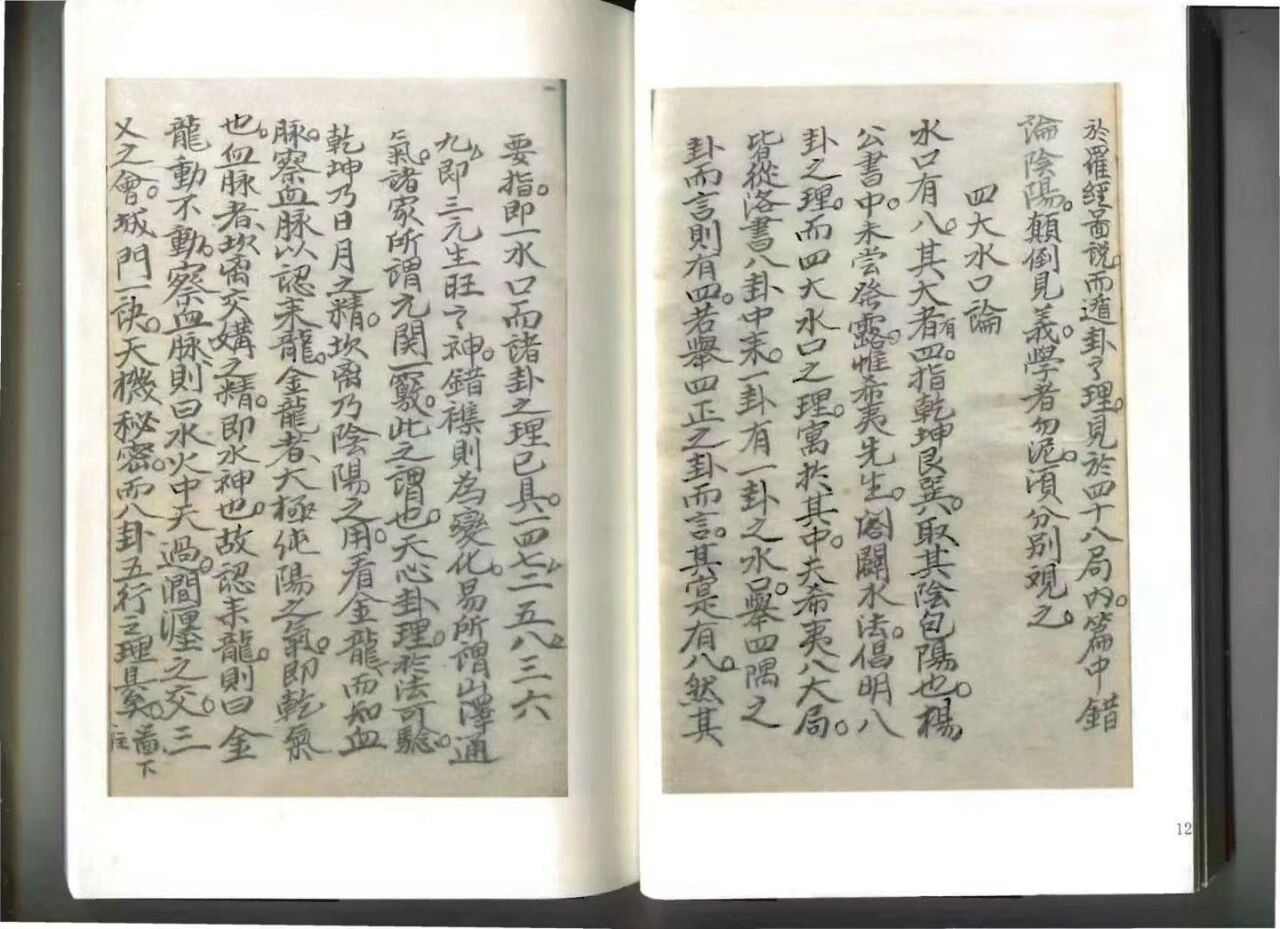 於羅經啚説而遁卦之理見於四十八局内篇中錯
論陰陽顛倒見義學者勿泥湏分别观之
四大水口論
水口有八其大者有四指乾坤艮巽取其陰包陽也楊
公書中未尝啓露惟希夷先生阖闢水法倡明八
卦之理而四大水口之理寓扵其中夫希夷八大局
皆從洛書八卦中来一卦有一卦之水口舉四隅之
卦而言則有四若舉四正之卦而言其寔有八然其
要指即一水口而諸卦之理已具一四七二五八三六
九即三元生旺之神錯襍則為變化易所謂山澤通
氣諸家所謂元関一竅此之謂也天心卦理於法可騐
乾坤乃日月之精坎离乃陰陽之用看金龍而知血
脉察血脉以認来龍金龍者太極純陽之氣即乾氣
也血脉者坎离交媾之精即水神也故認来龍則曰金
龍動不動察血脉則曰水火中天過澗瀍之交三
乂之會城門一訣天機秘密而八卦五行之理具矣啚下
註
12